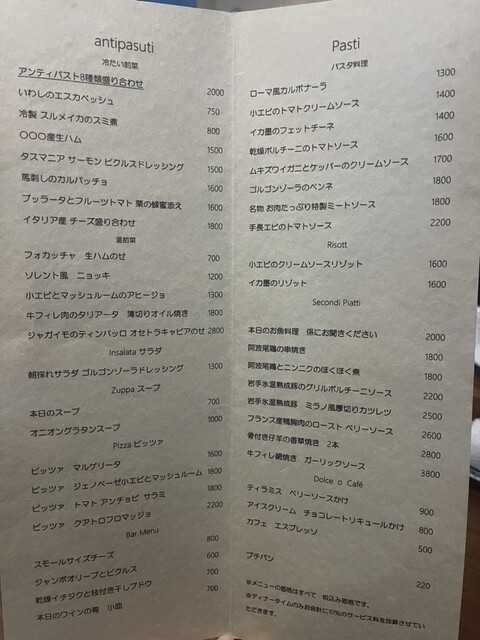 antipasuti
冷たい前菜
アンティパスト8種類盛り合わせ 2000
いわしのエスカベッシュ 750
冷製 スルメイカのスミ煮 800
〇〇〇産生ハム 1500
タスマニア サーモン ピクルスドレッシング 1500
馬刺しのカルパッチョ 1600
ブッラータとフルーツトマト 栗の蜂蜜添え 1600
イタリア産 チーズ盛り合わせ 1800
温前菜
フォカッチャ 生ハムのせ 700
ソレント風 ニョッキ 1200
小エビとマッシュルームのアヒージョ 1300
牛フィレ肉のタリアータ 薄切りオイル焼き 1800
ジャガイモのティンバッロ オセトラキャビアのせ 2800
Insalata サラダ
朝採れサラダ ゴルゴンゾーラドレッシング 1300
Zuppa スープ
本日のスープ 700
オニオングラタンスープ 1000
Pizza ピッツァ
ピッツァ マルゲリータ 1600
ピッツァ ジェノベーゼ小エビとマッシュルーム 1800
ピッツァ トマト アンチョビ サラミ 1800
ピッツァ クアトロフロマッジョ 2200
Bar Menu
スモールサイズチーズ 800
ジャンボオリーブとピクルス 600
乾燥イチジクと枝付き干しブドウ 700
本日のワインの肴 小皿
Pasti
パスタ料理
ローマ風カルボナーラ 1300
小エビのトマトクリームソース 1400
イカ墨のフェットチーネ 1400
乾燥ポルチーニのトマトソース 1600
ムキズワイガニとケッパーのクリームソース 1700
ゴルゴンゾーラのペンネ 1800
名物 お肉たっぷり特製ミートソース 1800
手長エビのトマトソース 2200
Risott
小エビのクリームソースリゾット 1600
イカ墨のリゾット 1600
Secondi Piatti
本日のお魚料理 係にお聞きください 2000
阿波尾鶏の串焼き 1800
阿波尾鶏とニンニクのほくほく煮 1800
岩手氷温熟成豚のグリルポルチーニソース 2200
岩手氷温熟成豚 ミラノ風厚切りカツレツ 2500
フランス産鴨胸肉のロースト ベリーソース 2600
骨付き仔羊の香草焼き 2本 2800
牛フィレ網焼き ガーリックソース 3800
Dolce o Café
ティラミス ベリーソースかけ 900
アイスクリーム チョコレートリキュールかけ 800
カフェ エスプレッソ 500
プチパン 220
※メニューの価格はすべて 税込み価格です。
※ディナータイムのみお会計に10%のサービス料を加算させてい
ただきます。